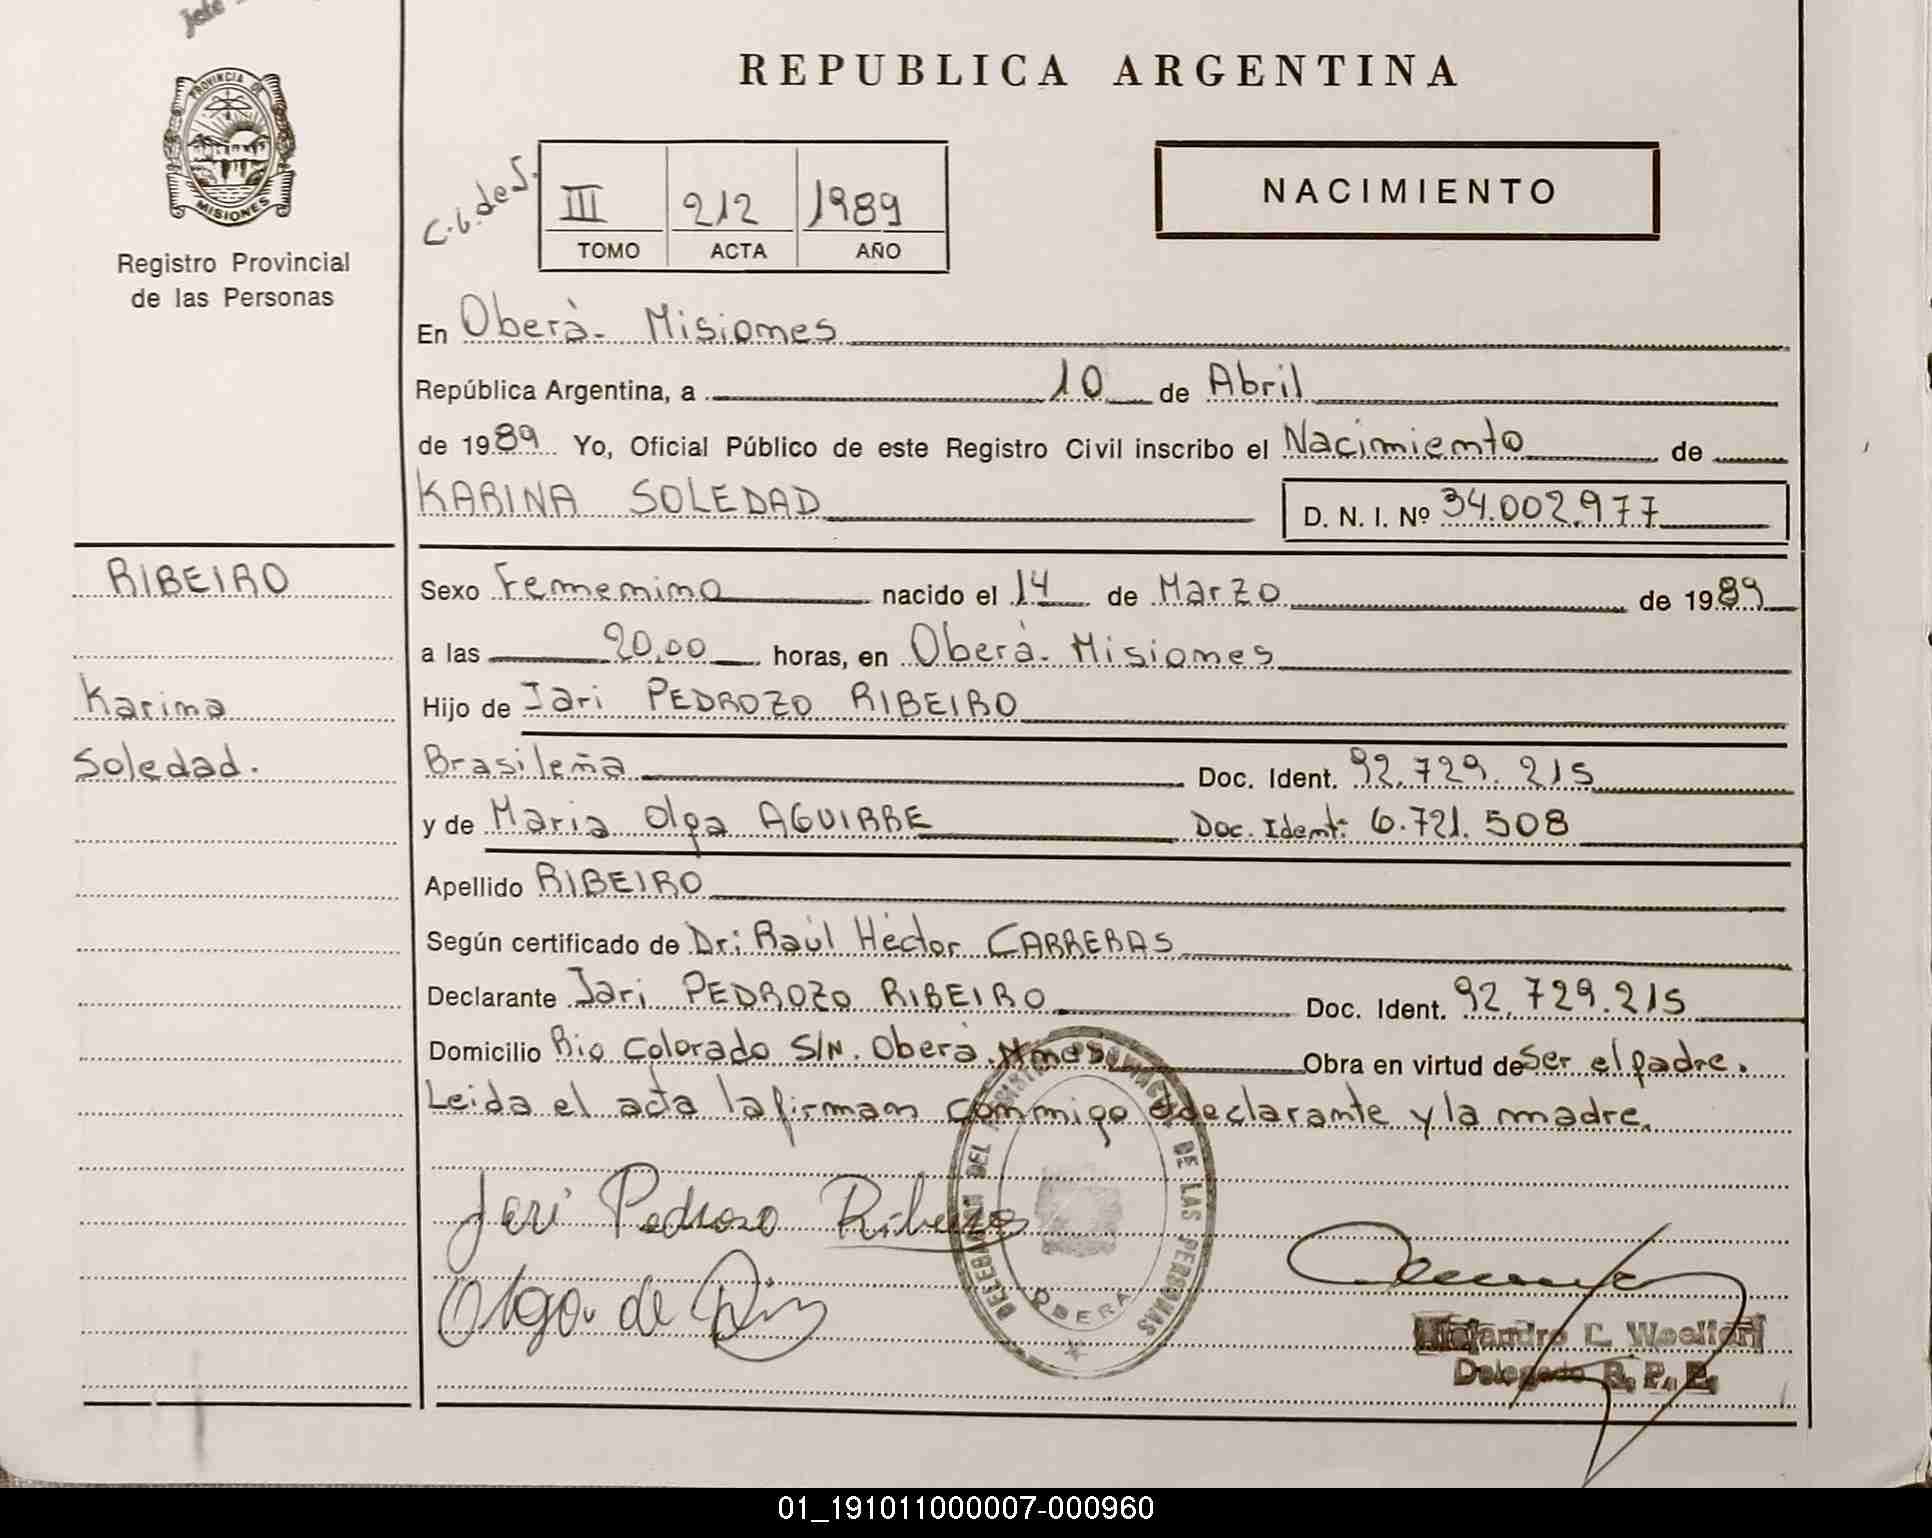 Jefe
PROVINCIA DE
MISIONES
Registro Provincial
de las Personas
REPUBLICA ARGENTINA
C.G. de S.
III 212 1989
TOMO ACTA AÑO
NACIMIENTO
En Oberà - Misiones
República Argentina, a 10 de Abril
de 1989 Yo, Oficial Público de este Registro Civil inscribo el Nacimiento de
KARINA SOLEDAD D. N. I. Nº 34.002.977
RIBEIRO
Karina
Soledad.
Sexo Femenino nacido el 14 de Marzo de 1989
a las 20,00 horas, en Oberà. Misiones
Hijo de Jari PEDROZO RIBEIRO
Brasileña Doc. Ident. 92.729.215
y de Maria Olga AGUIRRE Doc. Ident: 6.721.508
Apellido RIBEIRO
Según certificado de Dr: Raúl Héctor CARRERAS
Declarante Jari PEDROZO RIBEIRO Doc. Ident. 92.729.215
Domicilio Rio Colorado S/N. Oberà. Mnes. Obra en virtud de Ser el padre.
Leida el acta la firman conmigo declarante y la madre.
Jari Pedrozo Ribeiro
Olga de
DE LAS PERSONAS
OBERA
Delegado R. P. P.
01_191011000007-000960